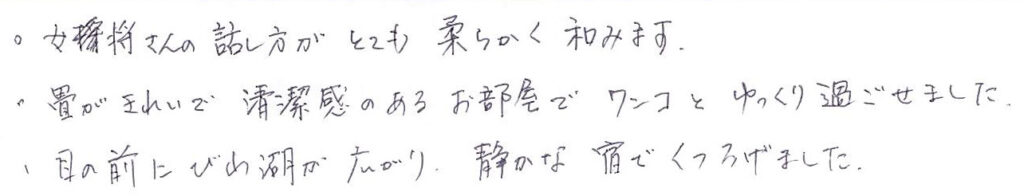 。女将さんの話し方がとても柔らかく和みます.
・畳がきれいで清潔感のあるお部屋でワンコとゆっくり過ごせました.
、目の前にびわ湖が広がり.静かな宿でくつろげました.